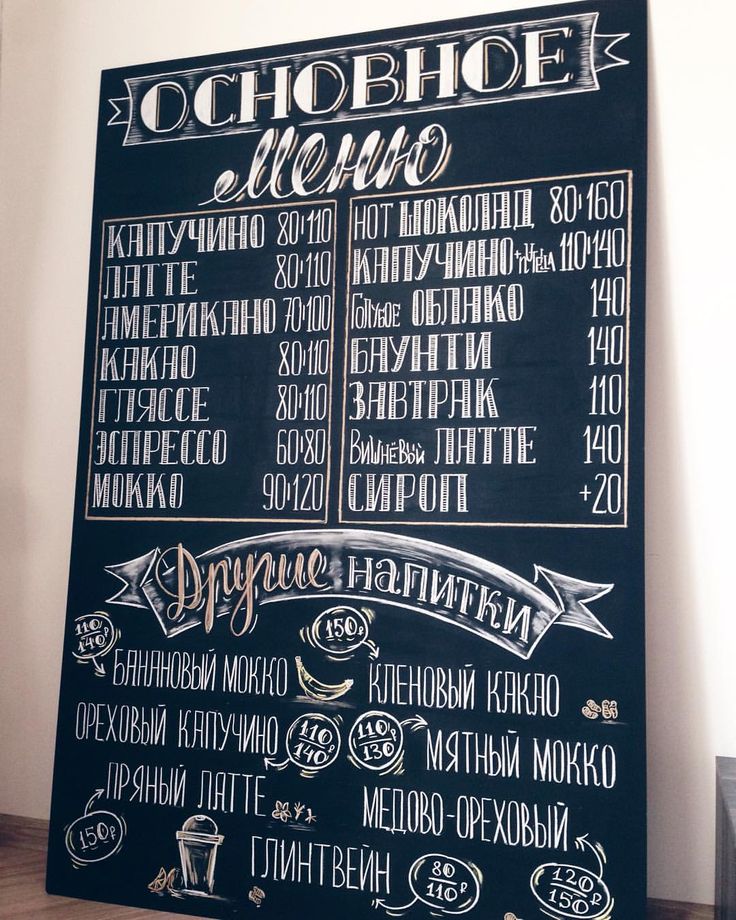 ОСНОВНОЕ
Меню
КАПУЧИНО 80'110
ЛАТТЕ 80'110
АМЕРИКАНО 70'100
КАКАО 80'110
ГЛЯССЕ 80'110
ЭСПРЕССО 60'80
МОККО 90'120
HOT ШОКОЛАД 80'160
КАПУЧИНО 110'140
ГОЛУБОЕ ОБЛАКО 140
БАУНТИ 140
ЗАВТРАК 110
ВИШНЁВЫЙ ЛАТТЕ 140
СИРОП +20
Другие напитки
110
140₽
БАНАНОВЫЙ МОККО
150₽
КЛЕНОВЫЙ КАКАО
ОРЕХОВЫЙ КАПУЧИНО
110
140
110₽
130
МЯТНЫЙ МОККО
ПРЯНЫЙ ЛАТТЕ
150₽
МЕДОВО-ОРЕХОВЫЙ
120
150₽
ГЛИНТВЕЙН
80
110₽